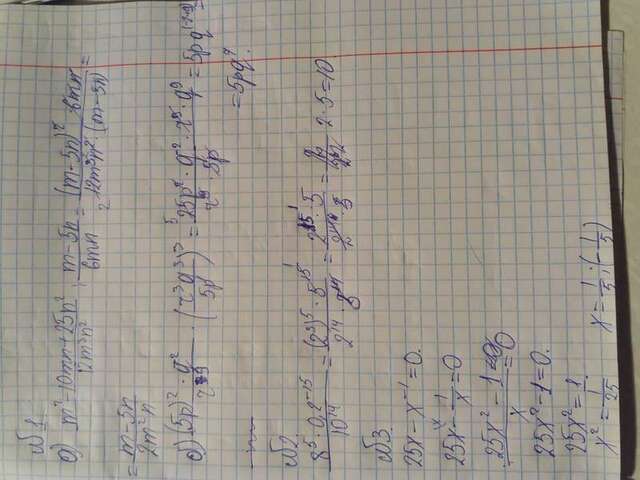 №1
а) (m²-10mn+25n²)/(12m³n²) : (m-5n)/(6mn) = ((m-5n)² 6mn)/(12m³n²·(m-5n)) =
= (m-5n)/(2m²n)
б) ((5p)²·q²)/r⁹ · (r³q³/5p)³ = (25p²·q²·r⁹·q⁹)/(r⁹·5p) = 5pq
= 5pq⁷.
№2.
(8⁵·0,2⁻¹⁵)/10¹⁴ = ((2³)⁵·5¹⁵)/(2¹⁴·5¹⁴) = 2·5=10
№3.
25x - x⁻¹ = 0.
25x - 1/x = 0
(25x² - 1)/x = 0
25x² - 1 = 0.
25x² = 1.
x² = 1/25 x = 1/5; (-1/5)